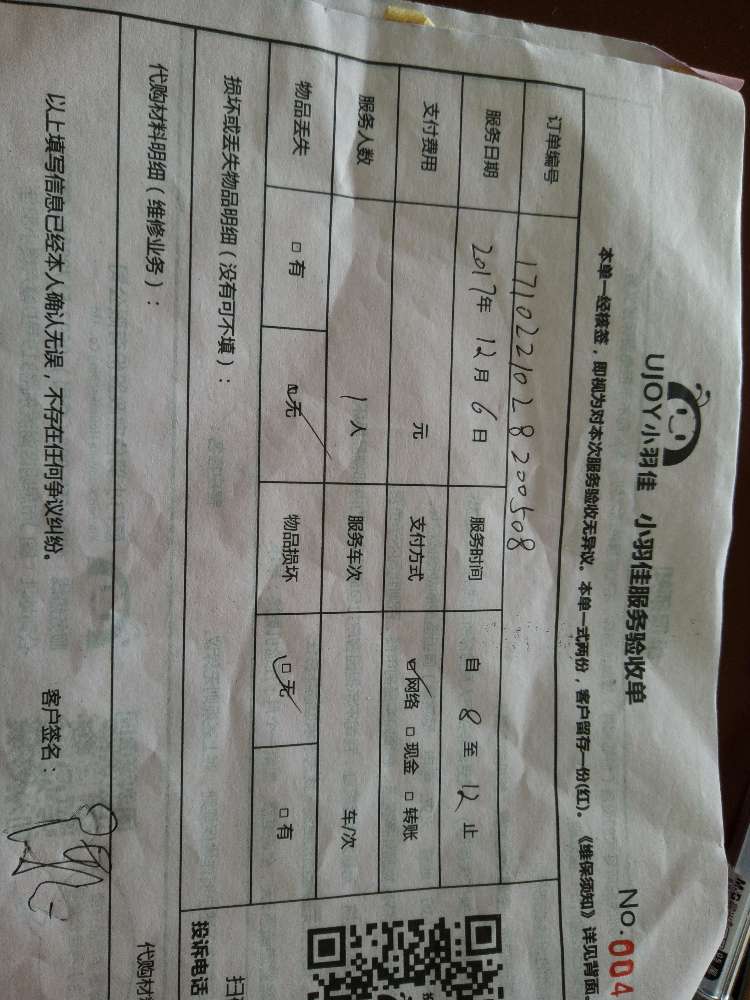 UJOY小羽佳 小羽佳服务验收单
No.004
本单一经核签，即视为对本次服务验收无异议。本单一式两份，客户留存一份(红)。《维保须知》详见背面。
订单编号 1710221028200508
服务日期 2017年 12月 6日 服务时间 自 8 至 12 止
支付费用 元 支付方式 ☑网络 □现金 □转账
服务人数 1人 服务车次 车/次
物品丢失 □有 ☑无 物品损坏 ☑无 □有
损坏或丢失物品明细（没有可不填）：
投诉电话
代购材料明细（维修业务）：
代购材
以上填写信息已经本人确认无误，不存在任何争议纠纷。 客户签名：